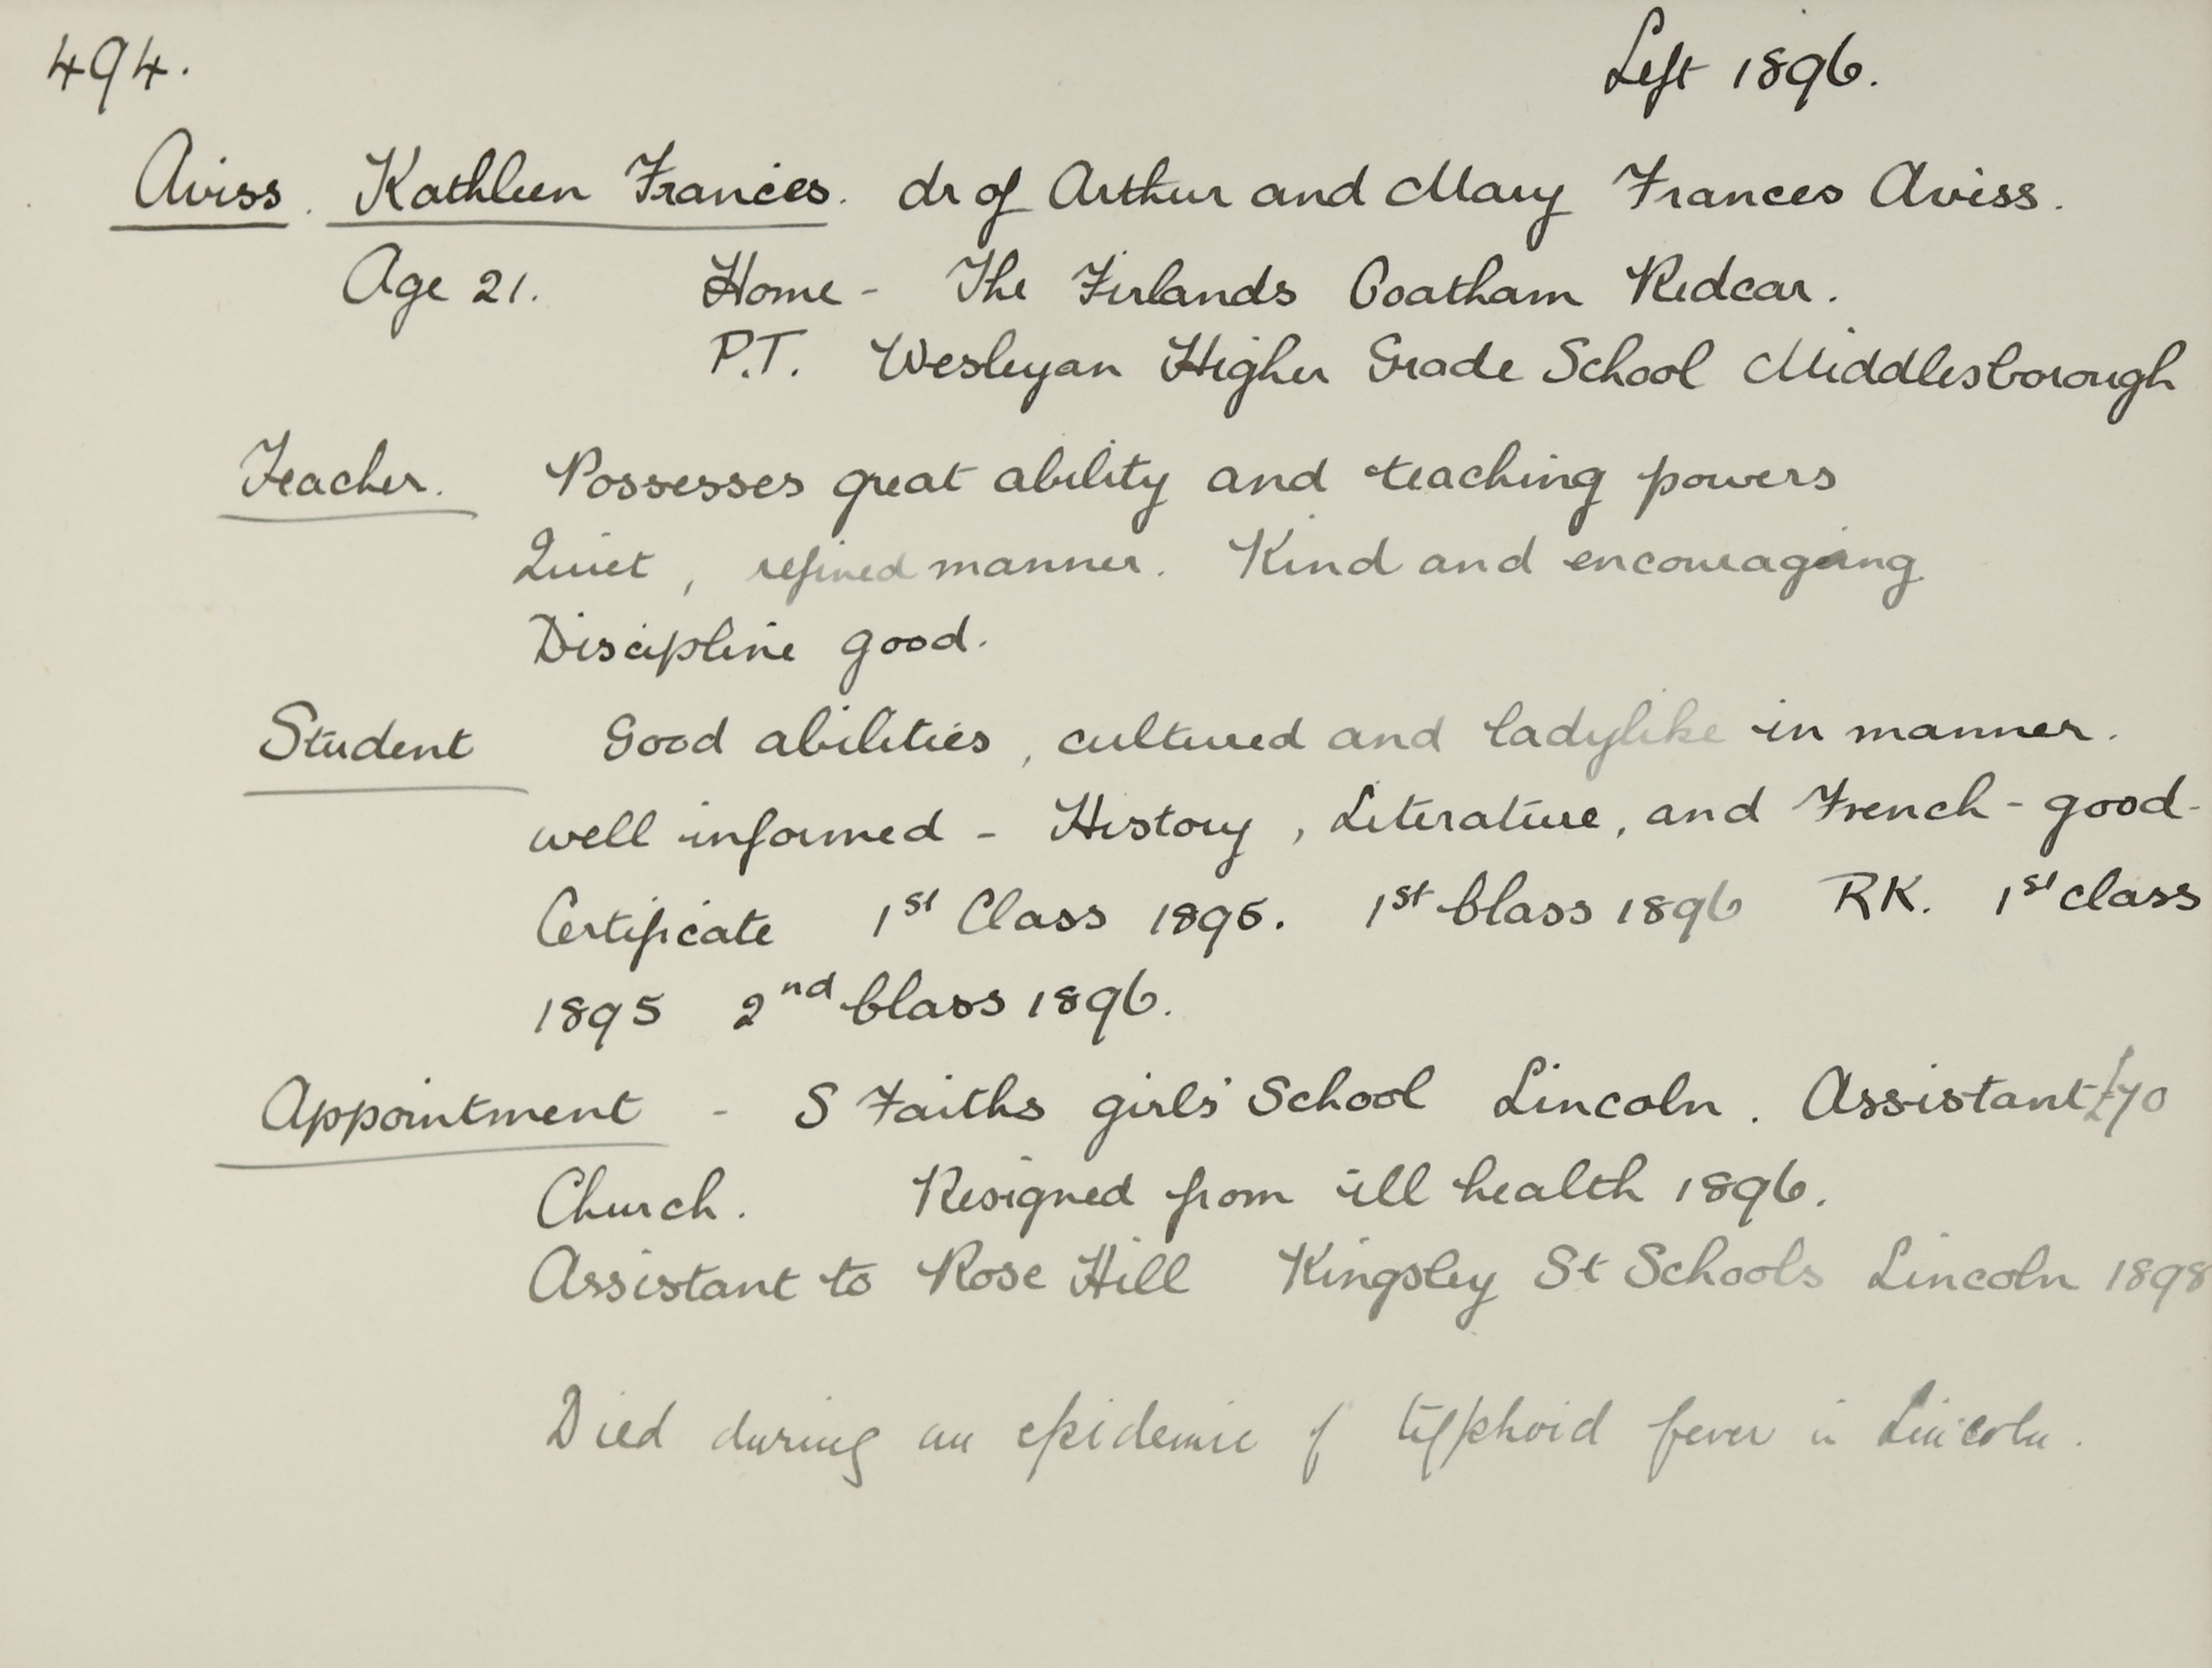 494. Left 1896.
Aviss. Kathleen Frances. dr of Arthur and Mary Frances Aviss.
Age 21. Home - The Firlands Coatham Redcar.
P.T. Wesleyan Higher Grade School Middlesborough
Teacher. Possesses great ability and teaching powers
Quiet, refined manner. Kind and encouraging
Discipline good.
Student Good abilities, cultured and ladylike in manner.
well informed - History, Literature, and French - good -
Certificate 1st Class 1895. 1st Class 1896 RK. 1st class
1895 2nd Class 1896.
Appointment - S Faiths girls' School Lincoln. Assistant £70
Church. Resigned from ill health 1896.
Assistant to Rose Hill Kingsley St Schools Lincoln 1898
Died during an epidemic of typhoid fever in Lincoln.